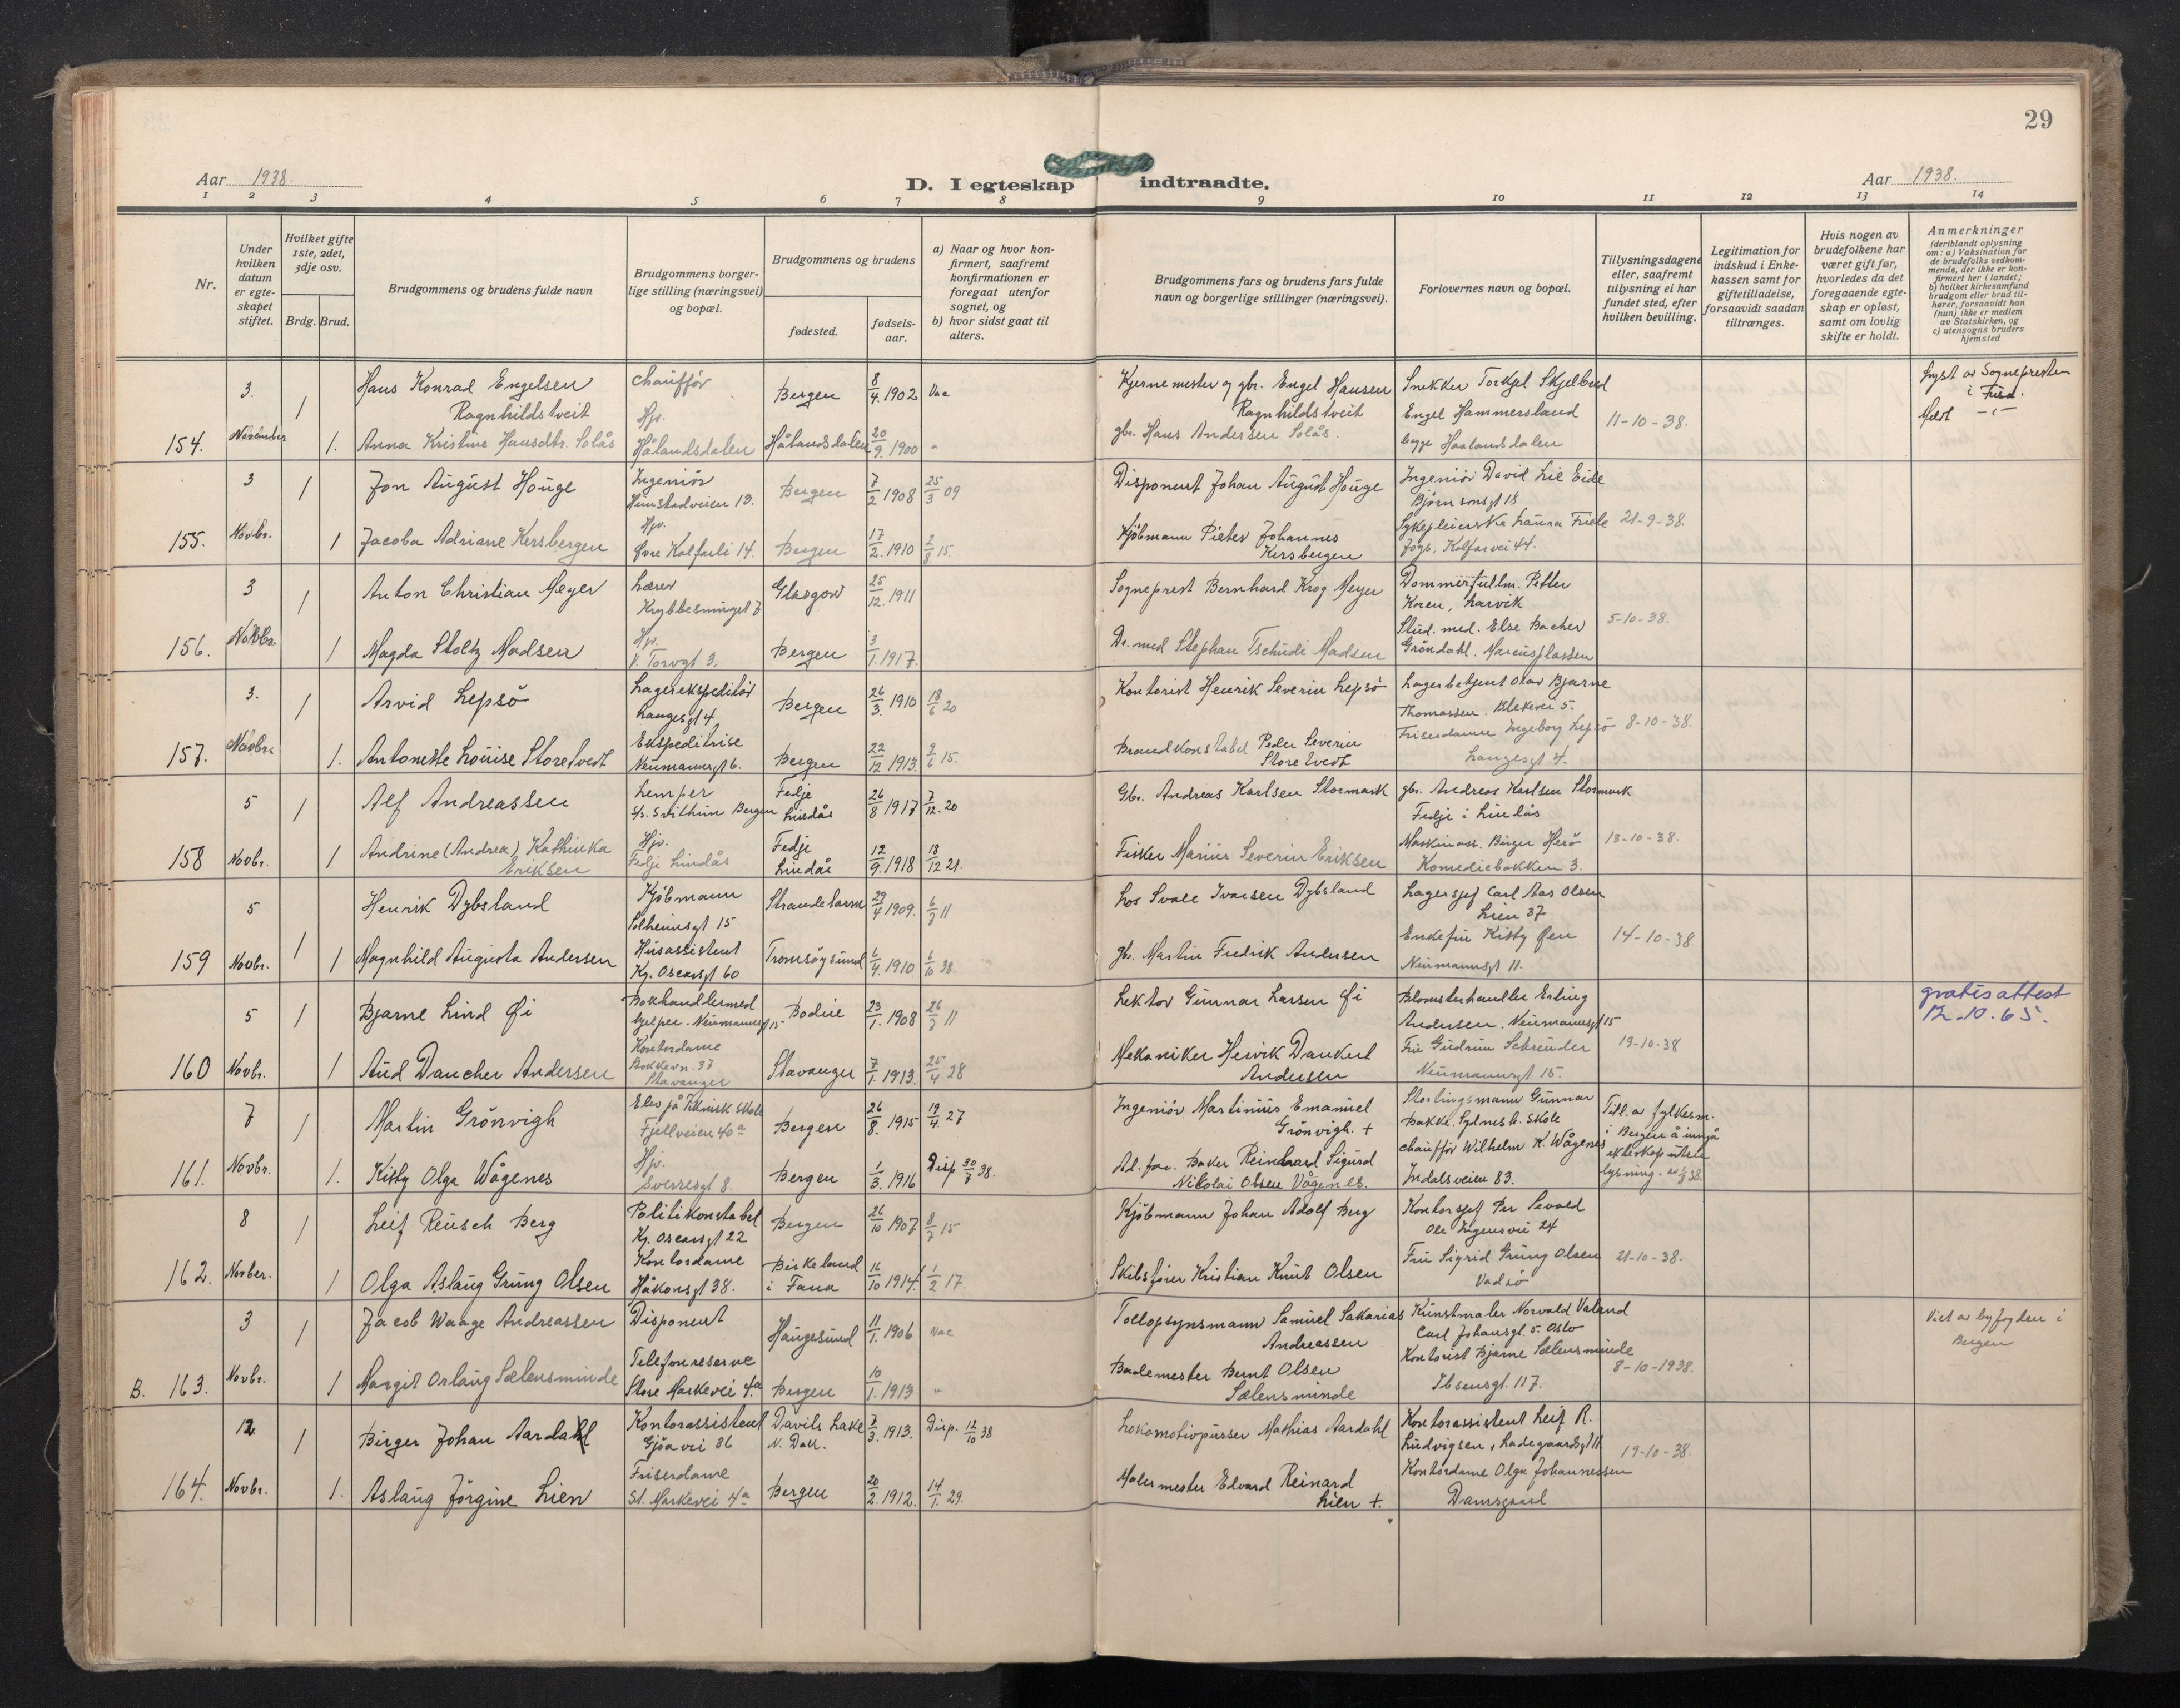 29
Aar 1938.
D. I egteskap indtraadte.
Aar 1938.
1 2 3 4 5 6 7 8 9 10 11 12 13 14
Nr.
Under hvilken datum er egteskapet stiftet.
Hvilket gifte 1ste, 2det, 3dje osv.
Brdg. Brud.
Brudgommens og brudens fulde navn
Brudgommens borgerlige stilling (næringsvei) og bopæl.
Brudgommens og brudens
fødested.
fødselsaar.
a) Naar og hvor konfirmert, saafremt konfirmationen er foregaat utenfor sognet, og
b) hvor sidst gaat til alters.
Brudgommens fars og brudens fars fulde navn og borgerlige stillinger (næringsvei).
Forlovernes navn og bopæl.
Tillysningsdagene eller, saafremt tillysning ei har fundet sted, efter hvilken bevilling.
Legitimation for indskud i Enkekassen samt for giftetilladelse, forsaavidt saadan tiltrænges.
Hvis nogen av brudefolkene har været gift før, hvorledes da det foregaaende egteskap er opløst, samt om lovlig skifte er holdt.
Anmerkninger
(deriblandt oplysning om: a) Vaksination for de brudefolks vedkommende, der ikke er konfirmert her i landet; b) hvilket kirkesamfund brudgom eller brud tilhører, forsaavidt han (hun) ikke er medlem av Statskirken, og c) utensogns bruders hjemsted
154. 3. November 1 1.
Hans Konrad Engelsen Ragnhildstveit
chauffør
Bergen 8/4. 1902 Vac
Anna Kristine Hansdtr. Solås
Hjv. Hålandsdalen
Hålandsdalen 20/9. 1900 "
Kjernemester og gbr. Engel Hansen Ragnhildstveit
gbr. Hans Andersen Solås.
Snekker Torkjel Skjelbred
Engel Hammersland
begge Haalandsdalen
11-10-38.
av Sognepresten i Fusa.
155. 3 Novbr. 1 1
Jon August Houge
Ingeniør
Bergen 7/2 1908 25/3 09
Jacoba Adriane Kersbergen
Hjv. Øvre Kalfarli 14.
Bergen 17/2. 1910 2/8 15.
Disponent Johan August Houge
Kjøbmann Pieter Johannes Kersbergen
Ingeniør David Lie Eide
Bjørnsonsgt 18
Sykepleierske Laura Friele
Jogs. Kalfarvei 44.
21-9-38.
156. 3 Novbr. 1 1
Anton Christian Meyer
Lærer
Glasgow 25/12. 1911
Magda Stoltz Madsen
Hjv. V. Torvgt 3.
Bergen 3/1. 1917.
Sogneprest Bernhard Krog Meyer
Dr. med Stephan Tschudi Madsen
Dommerfullm. Petter Koren, Larvik
Stud. med. Else Bacher Grøndahl. Marcusplassen
5-10-38.
157. 3. Novbr. 1 1.
Arvid Lepsø
Lagerekspeditør
Langesgt 4
Bergen 26/3. 1910 18/6 20
Antonette Louise Storetvedt
Ekspeditrise
Neumannsgt 6.
Bergen 22/12 1913. 2/6 15.
Kontorist Henrik Severin Lepsø
Brandkonstabel Peder Severin Storetvedt
Lagerbetjent Olav Bjarne Thomassen. Blekevei 5.
Friserdame Ingeborg Lepsø
Langesgt 4.
8-10-38.
158 5 Novbr. 1 1
Alf Andreassen
Lemper
S/s. St Sithun Bergen
Fedje Lindås 26/8 1917 7/12. 20
Andrine (Andrea) Kathinka Eriksen
Hjv. Fedje Lindås
Fedje Lindås 12/9. 1918 18/12 21.
Gbr. Andreas Karlsen Stormark
Fisker Marius Severin Eriksen
gbr. Andreas Karlsen Stormark
Fedje i Lindås
Maskinass. Birger Herø
Komediebakken 3.
13-10-38.
159 5 Novbr. 1 1
Henrik Dybsland
Kjøbmann
Solheimsgt 15
Strandebarm 29/4 1909. 6/7 11
Magnhild Augusta Andersen
Husassistent
Kg. Oscarsgt 60
Tromsøysund 6/4. 1910 6/10 38.
Los Svale Ivarsen Dybsland
gbr. Martin Fredrik Andersen
Lagersjef Carl Aas Olsen
Lien 37
Enkefru Kitty Øen
Neumannsgt 11.
14-10-38
160 5 Novbr. 1 1
Bjarne Lind Øi
Bokhandlermedhjelper. Neumannsgt 15
Bodin 23/1. 1908 26/7 11
Aud Dancher Andersen
Kontordame
Stavanger
Stavanger 7/1. 1913. 25/4 28
Lektor Gunnar Larsen Øi
Mekaniker Henrik Dankert Andersen
Blomsterhandler Erling Andersen. Neumannsgt 15
Fru Gudrun Schrøuder
Neumannsgt 15.
19-10-38
gratis attest
12-10-65.
161. 7 Novbr. 1 1.
Martin Grønvigh
Elev på Teknisk skole
Fjellveien 40a
Bergen 26/8. 1915 19/4. 27
Kitty Olga Wågenes
Hjv. Sverresgt 8.
Bergen 1/3. 1916 Disp 30/7 38.
Ingeniør Martinius Emanuel Grønvigh. +
Ad. far. Baker Reinhard Sigurd Nikolai Olsen Vågenes.
Stortingsmann Gunnar Bakke. Sydnesh. skole
chauffør Wilhelm K. Wågenes
Indalsveien 83.
Till. av fylkesm. i Bergen å inngå ekteskap uten lysning. 38.
162. 8 Novber. 1 1
Leif Reusch Berg
Politikonstabel
Kg. Oscarsgt 22
Bergen 26/10 1907 8/7 15
Olga Aslaug Grung Olsen
Kontordame
Håkonsgt 38.
Birkeland i Fana 16/10 1914. 1/2 17.
Kjøbmann Johan Adolf Berg
Skibsfører Kristian Knut Olsen
Kontorsjef Per Sevold
Ole Irgensvei 24
Fru Sigrid Grung Olsen
Vadsø
21-10-38.
B. 163. 3 Novbr. 1 1
Jacob Waage Andreassen
Disponent
Haugesund 11/1. 1906 Vac
Margit Orlaug Sælensminde
Telefonreserve
Store Markevei 4a
Bergen 10/1. 1913 "
Tollopsynsmann Samuel Sakarias Andreassen
Bademester Bernt Olsen Sælensminde
Kunstmaler Norvald Valand
Carl Johansgt. 5. Oslo
Kontorist Bjarne Sælensminde
Ibsensgt. 117.
8-10-1938.
Viet av byfogden i Bergen
164. 12 Novbr. 1 1.
Birger Johan Aardahl
Kontorassistent
Gjøavei 36
Davils Lake N. Dak. 7/3. 1913. Disp. 12/10 38
Aslaug Jørgine Lien
Friserdame
St. Markevei 4a
Bergen 20/2. 1912. 14/1. 29.
Lokomotivpusser Mathias Aardahl
Malermester Edvard Reinard Lien +.
Kontorassistent Leif R. Ludvigsen, Ladegaardsgt 11
Kontordame Olga Johannessen
Damsgaard
19-10-38.